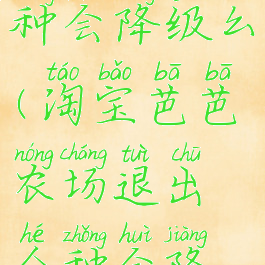 种会降级么
táo bǎo bā bā
(淘宝芭芭
nóng cháng tuì chū
农场退出
hé zhǒng huì jiàng
合种会降